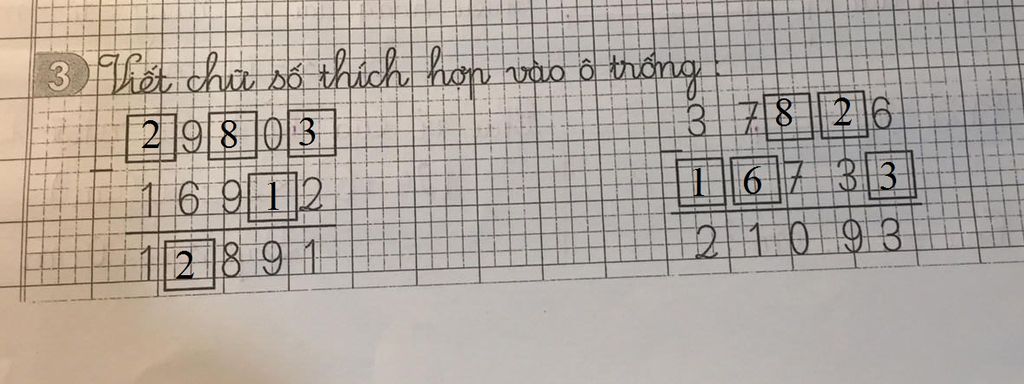 3 Viết chữ số thích hợp vào ô trống:
2 9 8 0 3
-
1 6 9 1 2
1 2 8 9 1
3 7 8 2 6
-
1 6 7 3 3
2 1 0 9 3